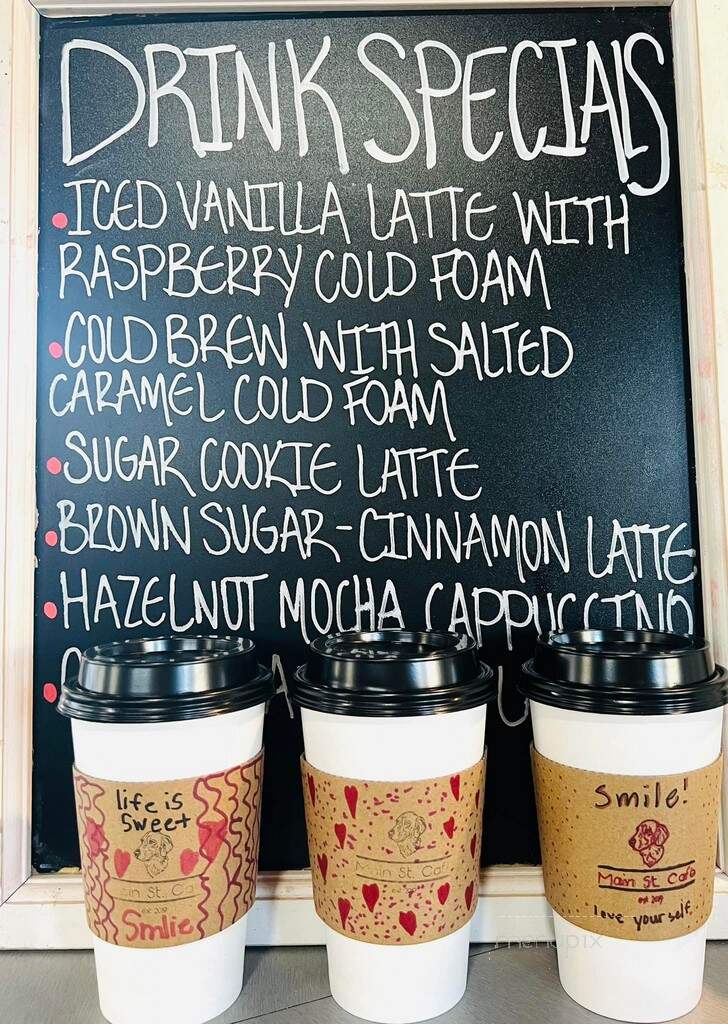 DRINK SPECIALS
• ICED VANILLA LATTE WITH
RASPBERRY COLD FOAM
• COLD BREW WITH SALTED
CARAMEL COLD FOAM
• SUGAR COOKIE LATTE
• BROWN SUGAR-CINNAMON LATTE
• HAZELNUT MOCHA CAPPUCCINO
life is
sweet
ain St. Ca
est 2019
Smlie
Main St. Cafe
est 2019
Smile!
Main St. Cafe
est 2019
love your self.
menupix